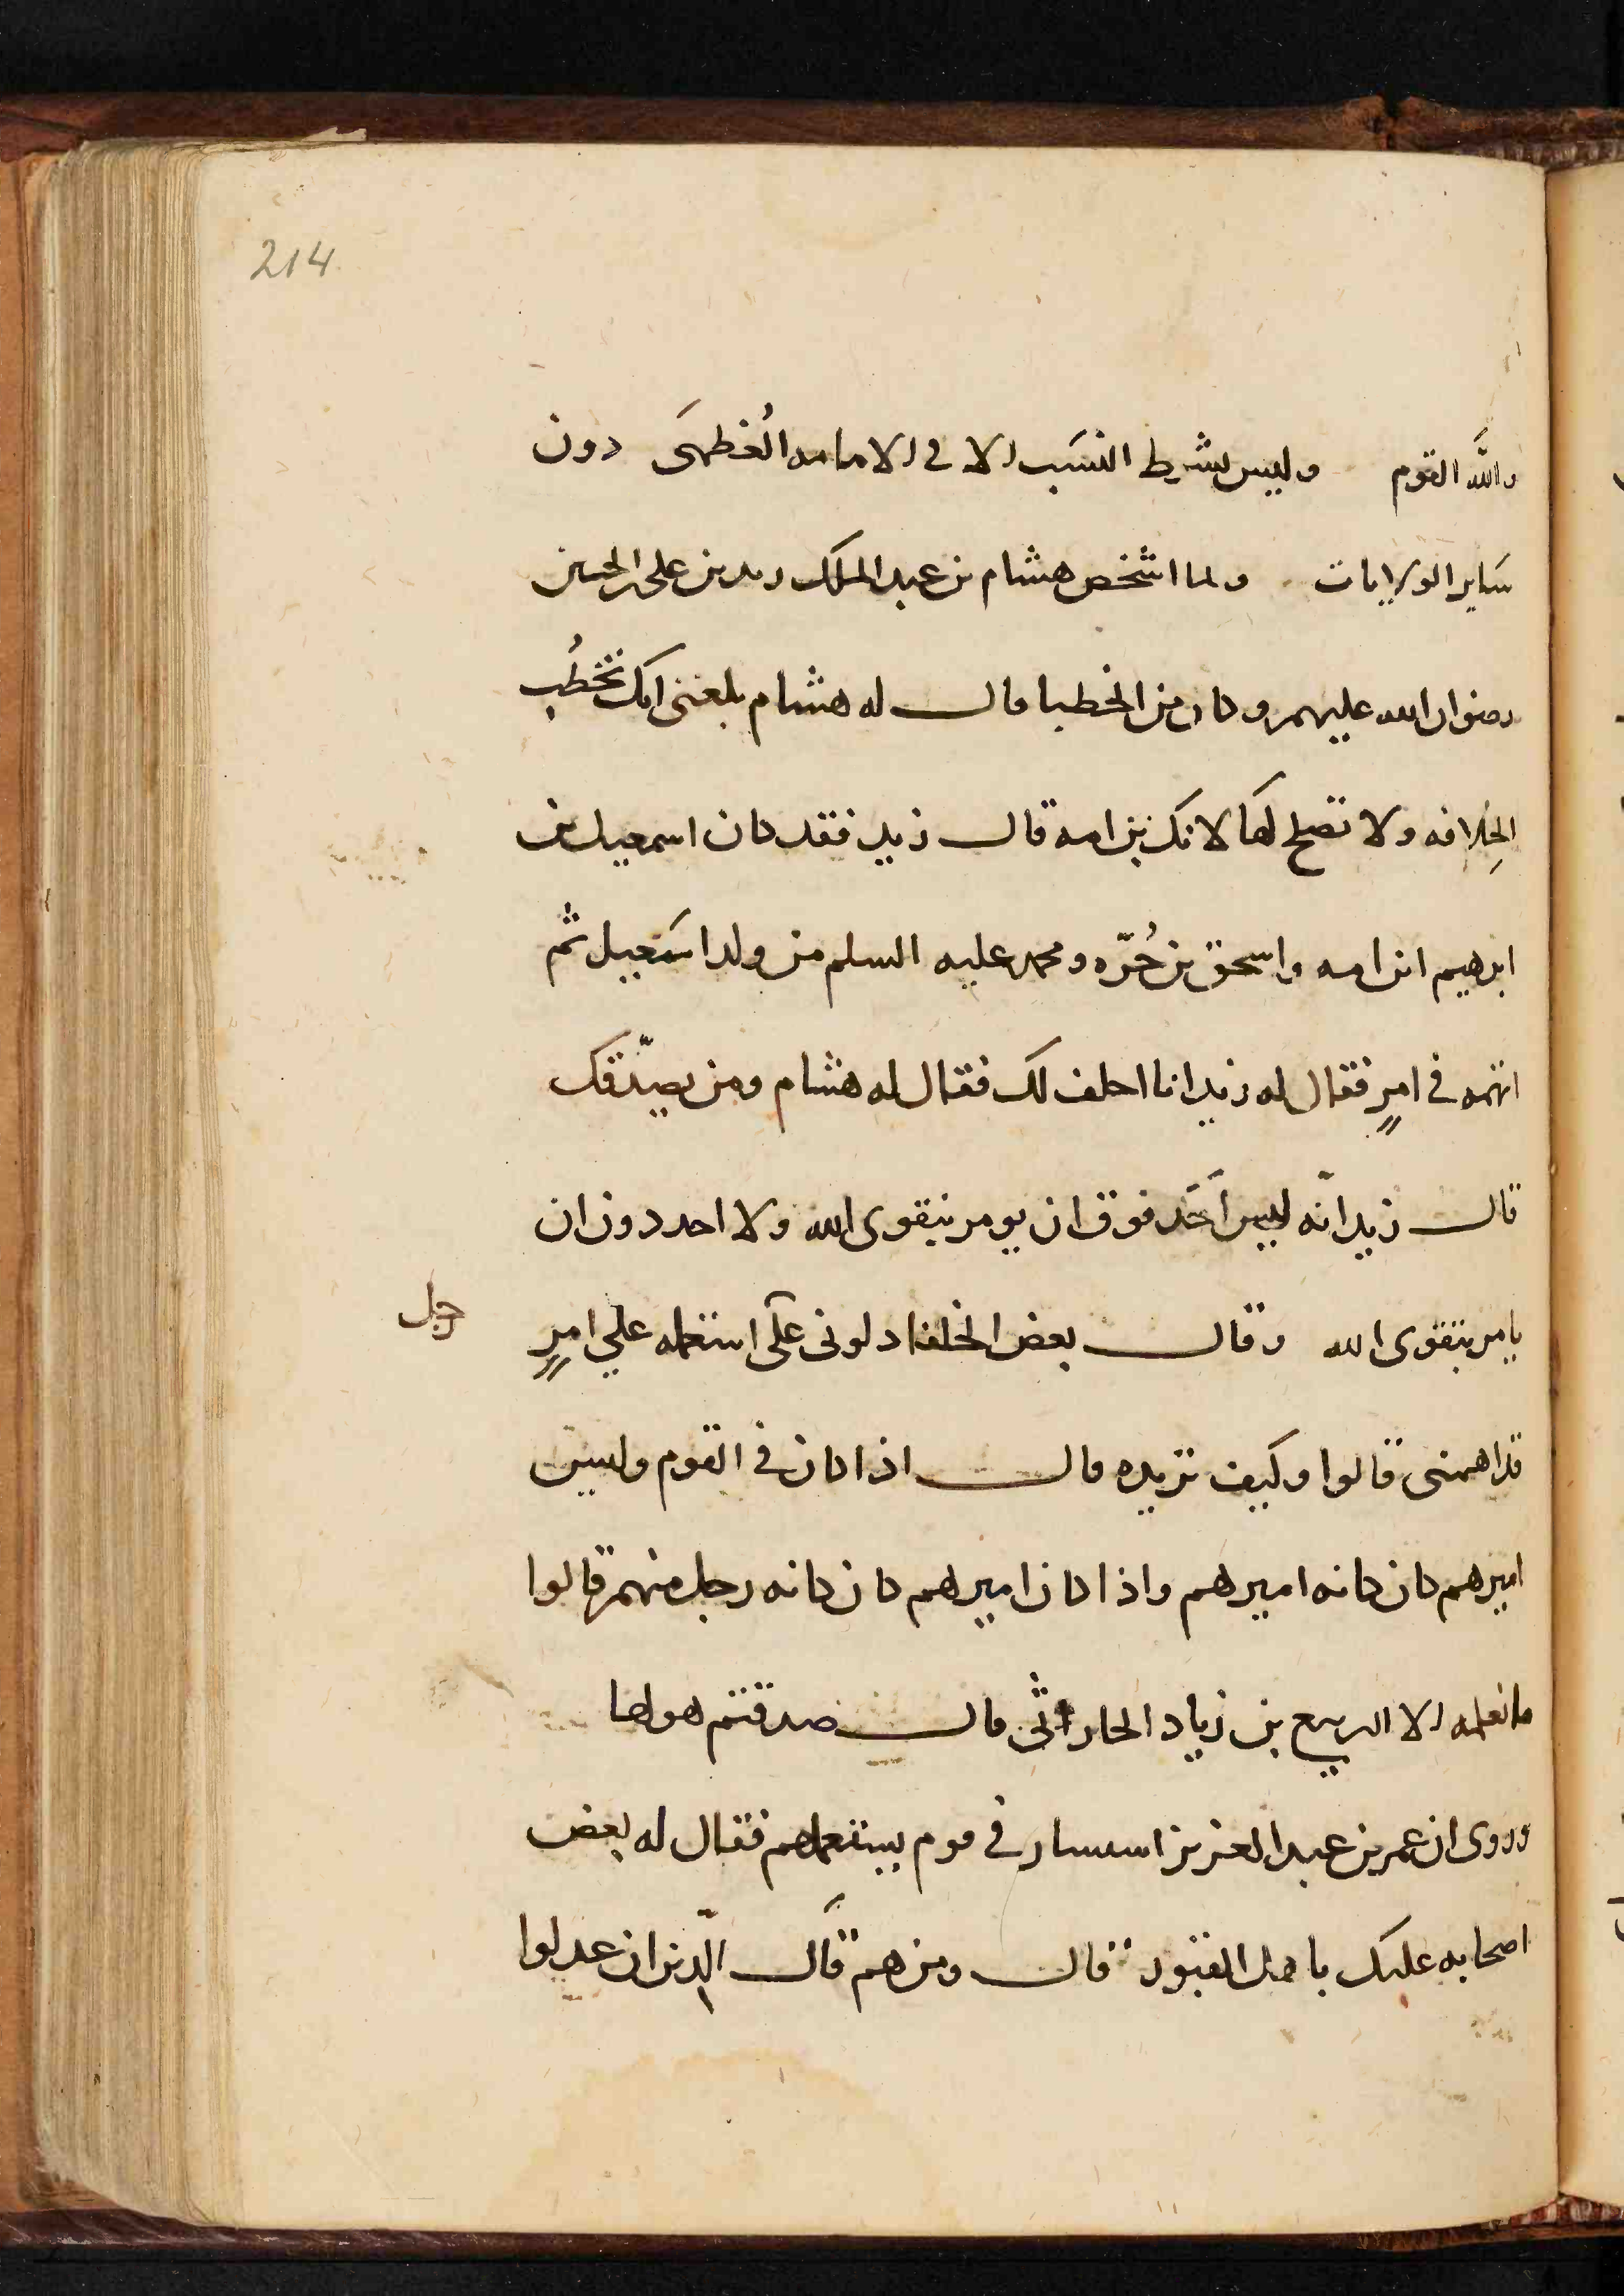 214
والله القوم وليس يشرط النسب الا في الامامه العُظمَى دون
سَاير الولايات ولما اشخص هشام بن عبد الملك زيد بن على بن الحسين
رضوان الله عليهم وكان من الخطبا قال له هشام بلغنى انك تخطُب
الخِلافه ولا تصلح لها لانك بن امه قال زيد فقد كان اسمعيل بن
ابرهيم ابن امه واسحق بن حُرّه ومحمد عليه السلم من ولد اسمعيل ثم
اتهمه في امرٍ فقال له زيد انا احلف لك فقال له هشام ومن يصدّقك
قال زيد انّه ليس اَحَد فوق ان يومر بتقوى الله ولا احد دون ان
يامر بتقوى الله وقال بعض الخلفا دلونى على استعمله علي امرٍ
رجل
قد اهمنى قالوا وكيف تريده قال اذا كان في القوم وليس
اميرهم كان كانه اميرهم واذا كان اميرهم كان كانه رجل منهم قالوا
ما نعلمه الا الربيع بن زياد الحارثى قال صدقتم هو لها
وروى ان عمر بن عبد العزيز استشار في قوم يستعملهم فقال له بعض
اصحابه عليك باهل القبور قال ومن هم قَال الّذين ان عدلوا